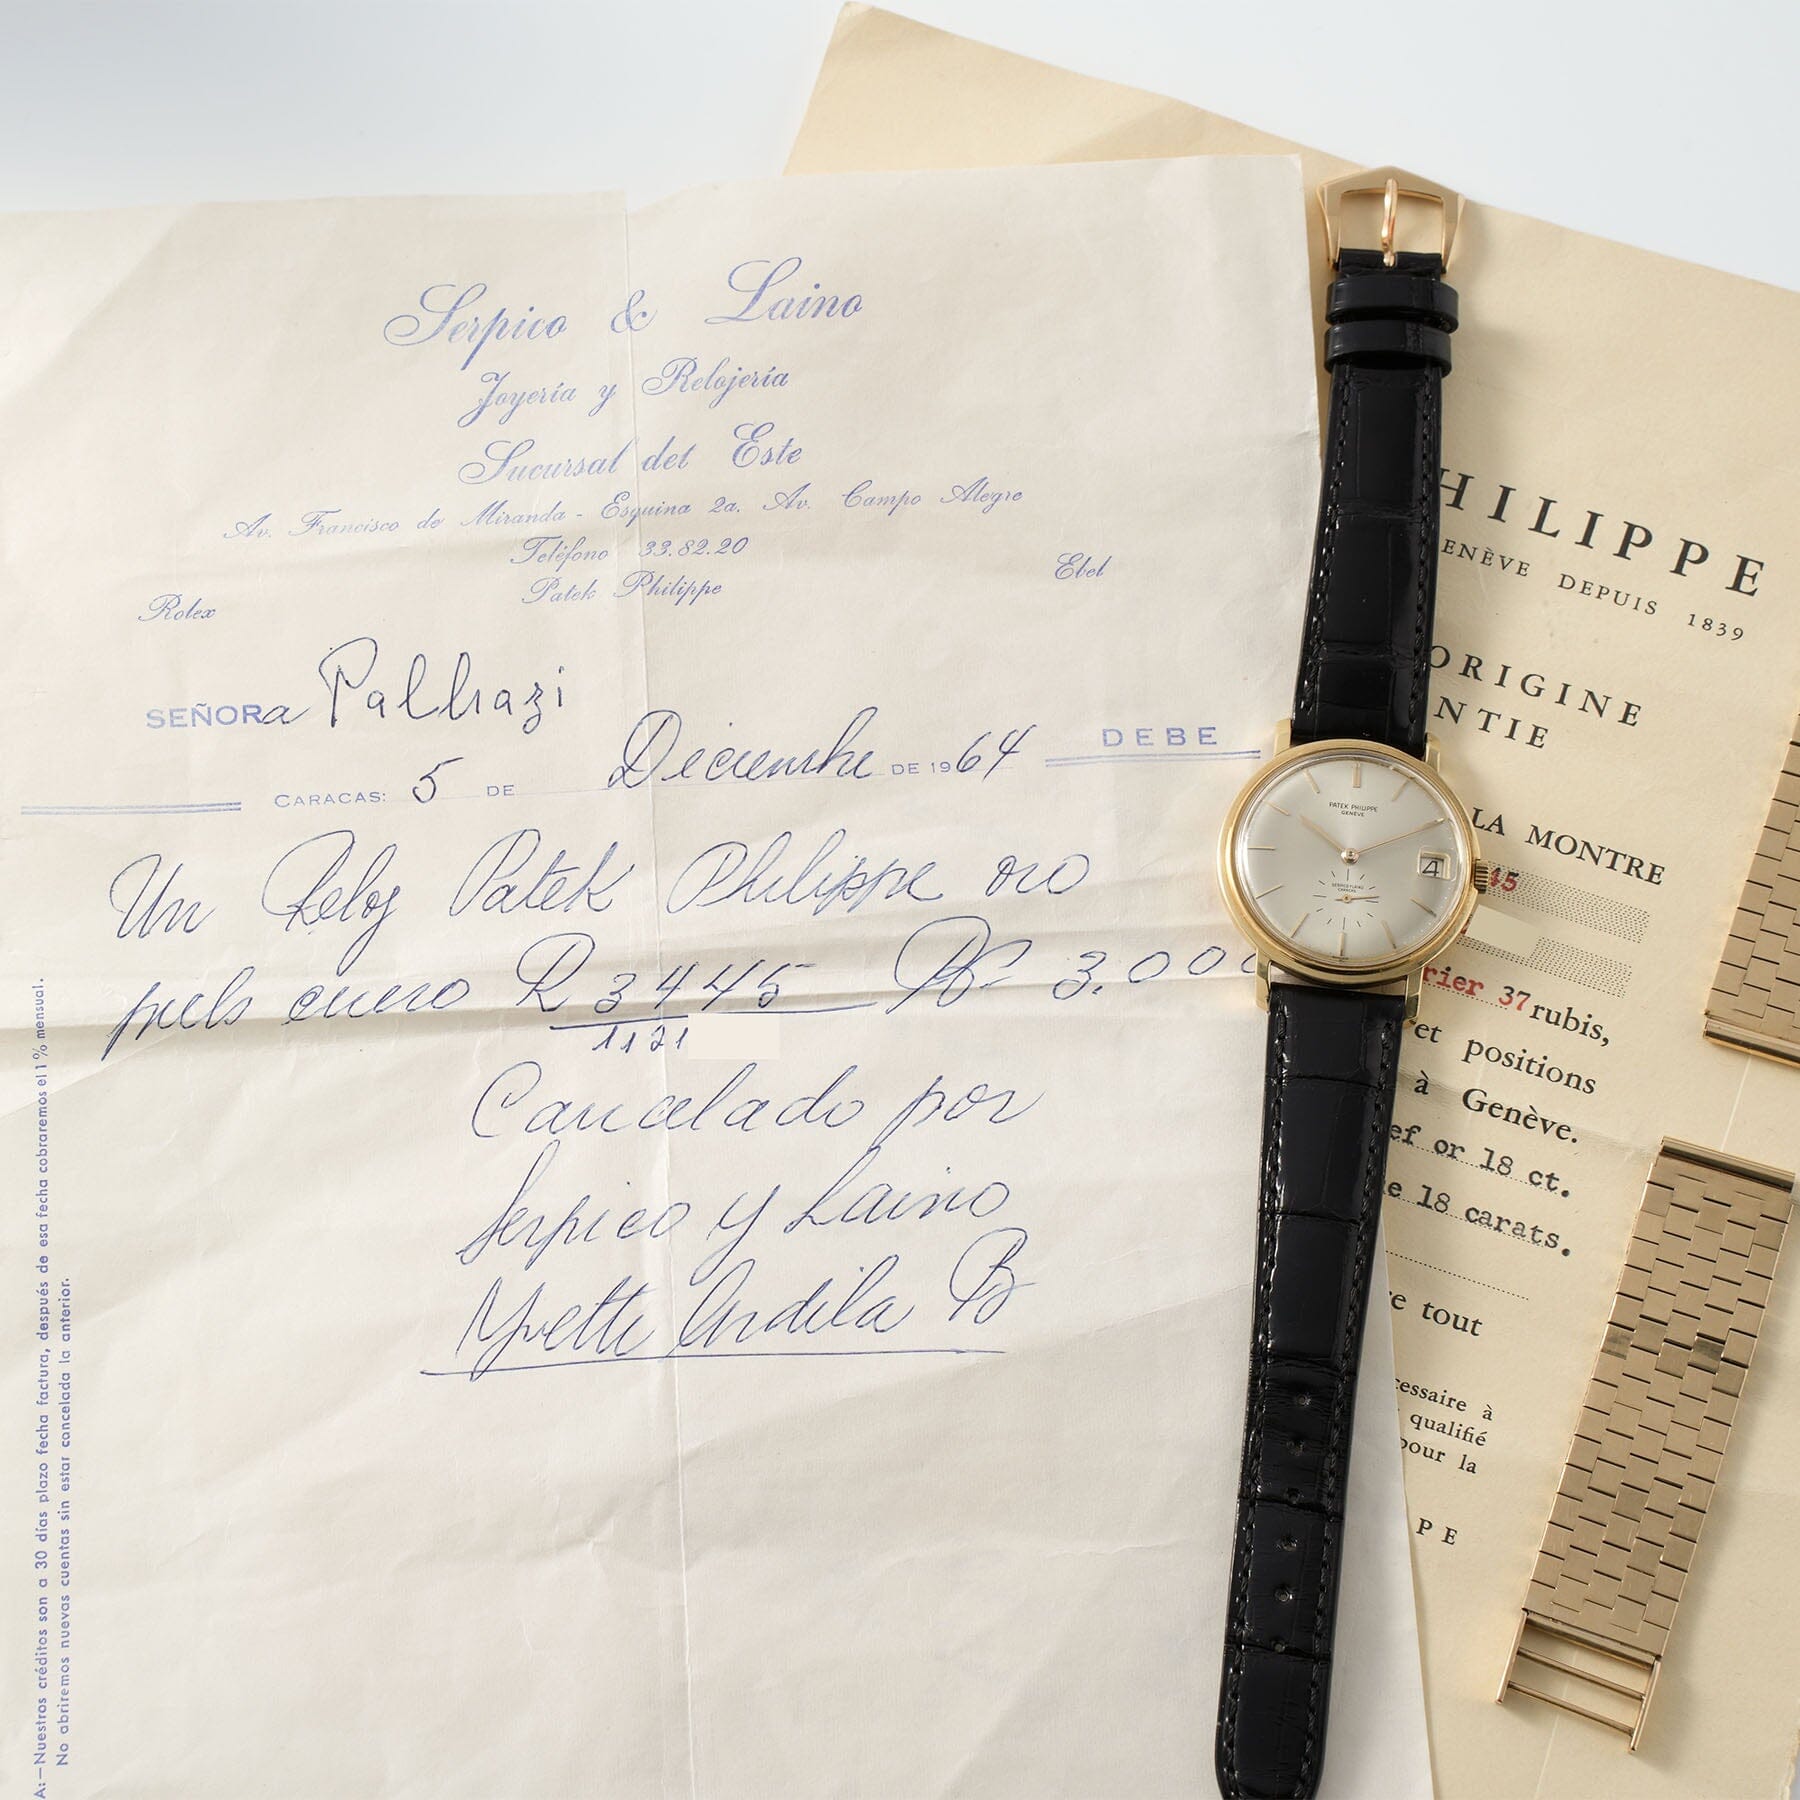 Serpico & Laino
Joyería y Relojería
Sucursal del Este
Av. Francisco de Miranda - Esquina 2a. Av. Campo Alegre
Teléfono 33.82.20
Rolex Patek Philippe Ebel
SEÑORa
CARACAS: 5 DE Diciembre DE 1964 DEBE
Un Reloj Patek Philippe oro
piels cuero R 3445 Bs 3.000
1121
Cancelado por
Serpico y Laino
Yvette B
A:—Nuestros créditos son a 30 días plazo fecha factura, después de esa fecha cobraremos el 1% mensual.
No abriremos nuevas cuentas sin estar cancelada la anterior.
PATEK PHILIPPE
GENÈVE
4
SERPICO Y LAINO
CARACAS
HILIPPE
ENÈVE DEPUIS 1839
ORIGINE
NTIE
LA MONTRE
45
rier 37 rubis,
et positions
à Genève.
ef or 18 ct.
e 18 carats.
e tout
cessaire à
qualifié
pour la
PE